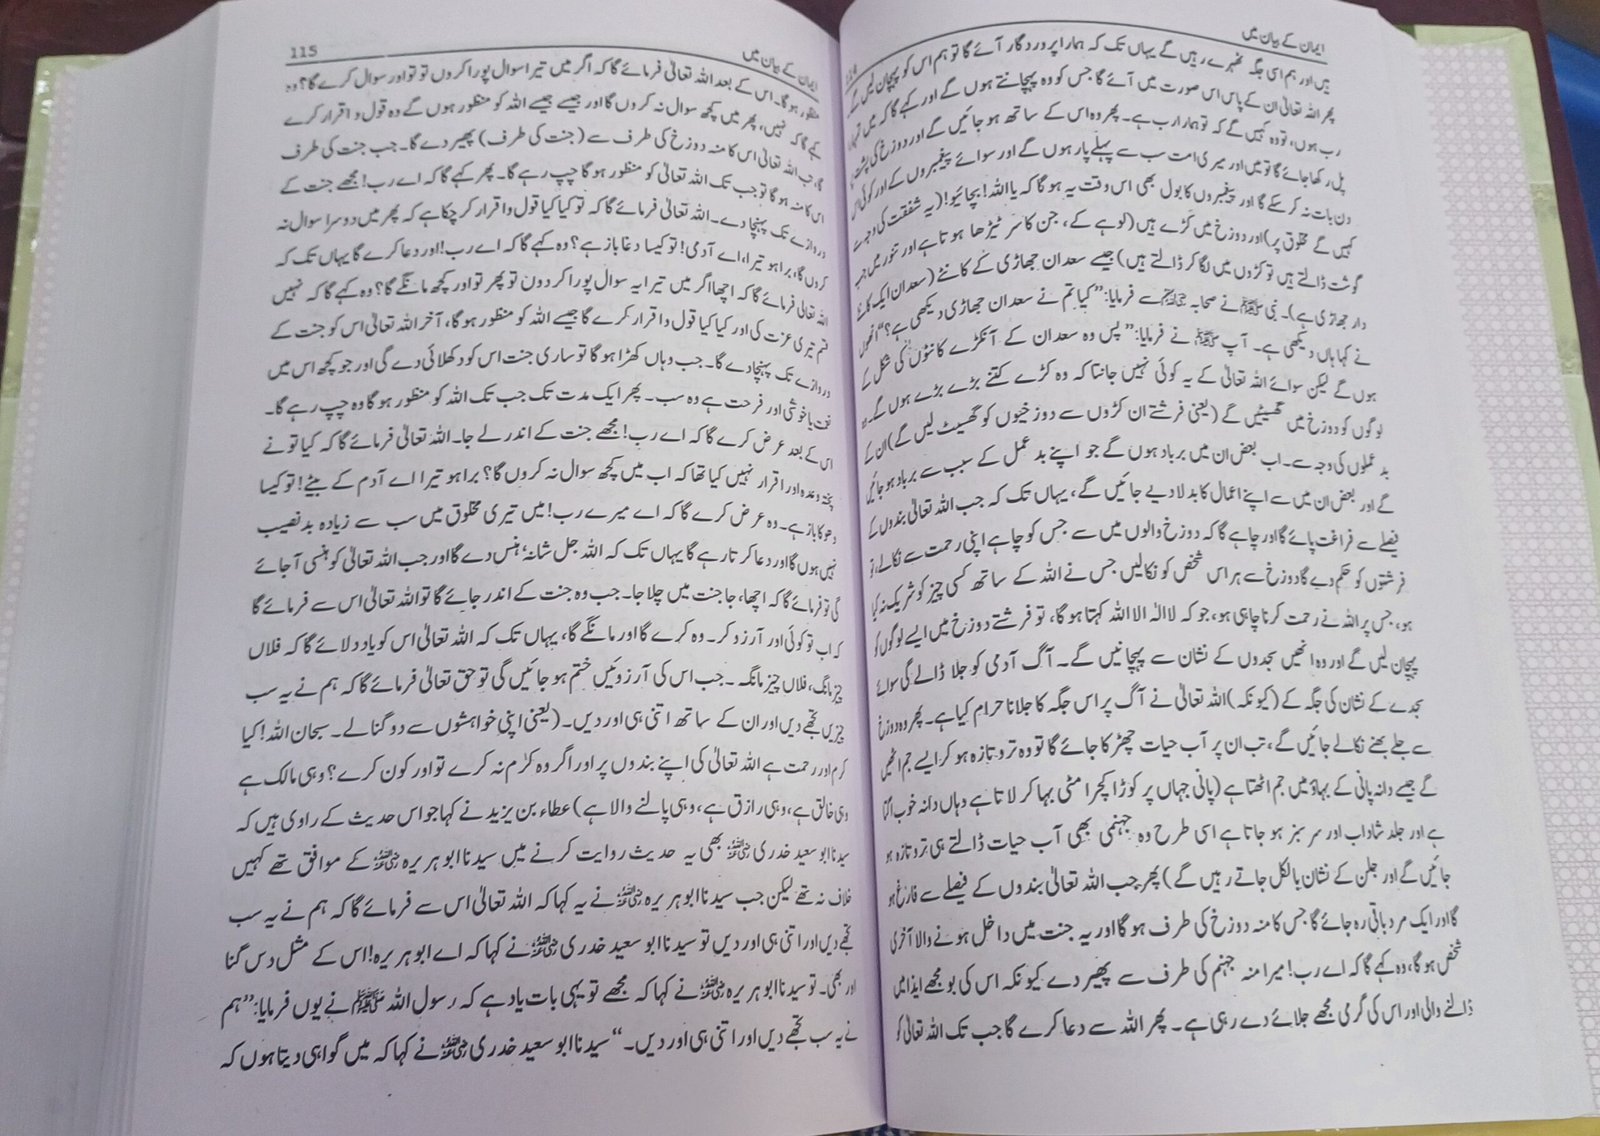 ایمان کے بیان میں
114
ہیں اور ہم اسی جگہ ٹھہرے رہیں گے یہاں تک کہ ہمارا پروردگار آئے گا تو ہم اس کو پہچان لیں گے
پھر اللہ تعالیٰ ان کے پاس اس صورت میں آئے گا جس کو وہ پہچانتے ہوں گے اور کہے گا کہ میں تمہارا
رب ہوں، تو وہ کہیں گے کہ تو ہمارا رب ہے۔ پھر وہ اس کے ساتھ ہو جائیں گے اور دوزخ کی پشت پر
پل رکھا جائے گا تو میں اور میری امت سب سے پہلے پار ہوں گے اور سوائے پیغمبروں کے اور کوئی اس
دن بات نہ کر سکے گا اور پیغمبروں کا بول بھی اس وقت یہ ہو گا کہ یا اللہ! بچائیو! (یہ شفقت کی وجہ سے
کہیں گے مخلوق پر) اور دوزخ میں کڑے ہیں (لوہے کے، جن کا سر ٹیڑھا ہوتا ہے اور تنور میں جب
گوشت ڈالتے ہیں تو کڑوں میں لگا کر ڈالتے ہیں) جیسے سعدان جھاڑی کے کانٹے (سعدان ایک کانٹے
دار جھاڑی ہے)۔ نبی ﷺ نے صحابہ ؓ سے فرمایا: ”کیا تم نے سعدان جھاڑی دیکھی ہے؟“ انھوں
نے کہا ہاں دیکھی ہے۔ آپ ﷺ نے فرمایا: ”پس وہ سعدان کے آنکڑے کانٹوں کی شکل کے
ہوں گے لیکن سوائے اللہ تعالیٰ کے یہ کوئی نہیں جانتا کہ وہ کڑے کتنے بڑے بڑے ہوں گے۔ وہ
لوگوں کو دوزخ میں گھسیٹیں گے (یعنی فرشتے ان کڑوں سے دوزخیوں کو گھسیٹ لیں گے) ان کے
بد عملوں کی وجہ سے۔ اب بعض ان میں برباد ہوں گے جو اپنے بد عمل کے سبب سے برباد ہو جائیں
گے اور بعض ان میں سے اپنے اعمال کا بدلا دیے جائیں گے، یہاں تک کہ جب اللہ تعالیٰ بندوں کے
فیصلے سے فراغت پائے گا اور چاہے گا کہ دوزخ والوں میں سے جس کو چاہے اپنی رحمت سے نکالے، تو
فرشتوں کو حکم دے گا دوزخ سے ہر اس شخص کو نکالیں جس نے اللہ کے ساتھ کسی چیز کو شریک نہ کیا
ہو، جس پر اللہ نے رحمت کرنا چاہی ہو، جو کہ لا الٰہ الا اللہ کہتا ہو گا، تو فرشتے دوزخ میں ایسے لوگوں کو
پہچان لیں گے اور وہ انھیں سجدوں کے نشان سے پہچانیں گے۔ آگ آدمی کو جلا ڈالے گی سوائے
سجدے کے نشان کی جگہ کے (کیونکہ) اللہ تعالیٰ نے آگ پر اس جگہ کا جلانا حرام کیا ہے۔ پھر وہ دوزخ
سے جلے بھنے نکالے جائیں گے، تب ان پر آب حیات چھڑکا جائے گا تو وہ تروتازہ ہو کر ایسے جم اٹھیں
گے جیسے دانہ پانی کے بہاؤ میں جم اٹھتا ہے (پانی جہاں پر کوڑا کچرا مٹی بہا کر لاتا ہے وہاں دانہ خوب اگتا
ہے اور جلد شاداب اور سرسبز ہو جاتا ہے اسی طرح وہ جہنمی بھی آب حیات ڈالتے ہی تروتازہ ہو
جائیں گے اور جلن کے نشان بالکل جاتے رہیں گے) پھر جب اللہ تعالیٰ بندوں کے فیصلے سے فارغ ہو
گا اور ایک مرد باقی رہ جائے گا جس کا منہ دوزخ کی طرف ہو گا اور یہ جنت میں داخل ہونے والا آخری
شخص ہو گا، وہ کہے گا کہ اے رب! میرا منہ جہنم کی طرف سے پھیر دے کیونکہ اس کی بو مجھے ایذا میں
ڈالنے والی اور اس کی گرمی مجھے جلائے دے رہی ہے۔ پھر اللہ سے دعا کرے گا جب تک اللہ تعالیٰ کو
ایمان کے بیان میں
115
منظور ہو گا۔ اس کے بعد اللہ تعالیٰ فرمائے گا کہ اگر میں تیرا سوال پورا کروں تو تو اور سوال کرے گا؟ وہ
کہے گا کہ نہیں، پھر میں کچھ سوال نہ کروں گا اور جیسے جیسے اللہ کو منظور ہوں گے وہ قول و اقرار کرے
گا، تب اللہ تعالیٰ اس کا منہ دوزخ کی طرف سے (جنت کی طرف) پھیر دے گا۔ جب جنت کی طرف
اس کا منہ ہو گا تو جب تک اللہ تعالیٰ کو منظور ہو گا چپ رہے گا۔ پھر کہے گا کہ اے رب! مجھے جنت کے
دروازے تک پہنچا دے۔ اللہ تعالیٰ فرمائے گا کہ تو کیا کیا قول و اقرار کر چکا ہے کہ پھر میں دوسرا سوال نہ
کروں گا، برا ہو تیرا، اے آدمی! تو کیسا دغاباز ہے؟ وہ کہے گا کہ اے رب! اور دعا کرے گا یہاں تک کہ
اللہ تعالیٰ فرمائے گا کہ اچھا اگر میں تیرا یہ سوال پورا کر دوں تو پھر تو اور کچھ مانگے گا؟ وہ کہے گا کہ نہیں
قسم تیری عزت کی اور کیا کیا قول و اقرار کرے گا جیسے اللہ کو منظور ہو گا، آخر اللہ تعالیٰ اس کو جنت کے
دروازے تک پہنچا دے گا۔ جب وہاں کھڑا ہو گا تو ساری جنت اس کو دکھلائی دے گی اور جو کچھ اس میں
نعمت یا خوشی اور فرحت ہے وہ سب۔ پھر ایک مدت تک جب تک اللہ کو منظور ہو گا وہ چپ رہے گا۔
اس کے بعد عرض کرے گا کہ اے رب! مجھے جنت کے اندر لے جا۔ اللہ تعالیٰ فرمائے گا کہ کیا تو نے
پختہ وعدہ اور اقرار نہیں کیا تھا کہ اب میں کچھ سوال نہ کروں گا؟ برا ہو تیرا اے آدم کے بیٹے! تو کیسا
دھوکا باز ہے۔ وہ عرض کرے گا کہ اے میرے رب! میں تیری مخلوق میں سب سے زیادہ بدنصیب
نہیں ہوں گا اور دعا کرتا رہے گا یہاں تک کہ اللہ جل شانہٗ ہنس دے گا اور جب اللہ تعالیٰ کو ہنسی آ جائے
گی تو فرمائے گا کہ اچھا، جا جنت میں چلا جا۔ جب وہ جنت کے اندر جائے گا تو اللہ تعالیٰ اس سے فرمائے گا
کہ اب تو کوئی اور آرزو کر۔ وہ کرے گا اور مانگے گا، یہاں تک کہ اللہ تعالیٰ اس کو یاد دلائے گا کہ فلاں
چیز مانگ، فلاں چیز مانگ۔ جب اس کی آرزوئیں ختم ہو جائیں گی تو حق تعالیٰ فرمائے گا کہ ہم نے یہ سب
چیزیں تجھے دیں اور ان کے ساتھ اتنی ہی اور دیں۔ (یعنی اپنی خواہشوں سے دو گنا لے۔ سبحان اللہ! کیا
کرم اور رحمت ہے اللہ تعالیٰ کی اپنے بندوں پر اور اگر وہ کرم نہ کرے تو اور کون کرے؟ وہی مالک ہے
وہی خالق ہے، وہی رازق ہے، وہی پالنے والا ہے) عطاء بن یزید نے کہا جو اس حدیث کے راوی ہیں کہ
سیدنا ابو سعید خدری ؓ بھی یہ حدیث روایت کرنے میں سیدنا ابو ہریرہ ؓ کے موافق تھے کہیں
خلاف نہ تھے لیکن جب سیدنا ابو ہریرہ ؓ نے یہ کہا کہ اللہ تعالیٰ اس سے فرمائے گا کہ ہم نے یہ سب
تجھے دیں اور اتنی ہی اور دیں تو سیدنا ابو سعید خدری ؓ نے کہا کہ اے ابو ہریرہ! اس کے مثل دس گنا
اور بھی۔ تو سیدنا ابو ہریرہ ؓ نے کہا کہ مجھے تو یہی بات یاد ہے کہ رسول اللہ ﷺ نے یوں فرمایا: ”ہم
نے یہ سب تجھے دیں اور اتنی ہی اور دیں۔“ سیدنا ابو سعید خدری ؓ نے کہا کہ میں گواہی دیتا ہوں کہ